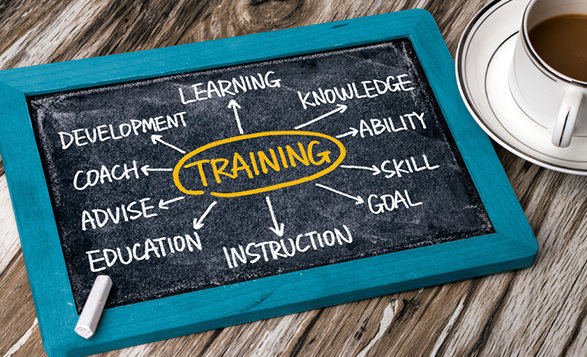 LEARNING
KNOWLEDGE
DEVELOPMENT
ABILITY
COACH
TRAINING
SKILL
ADVISE
GOAL
EDUCATION
INSTRUCTION